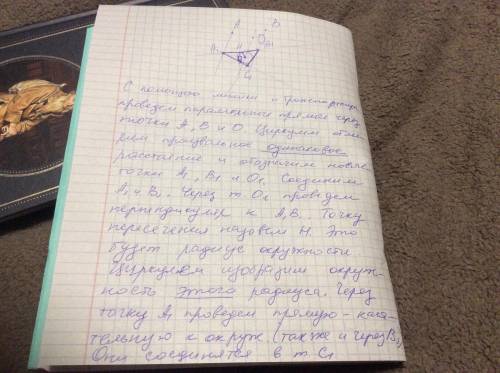 A B
A₁ H O₁
C₁
С помощью линейки и транспортира
проведем параллельные прямые через
точки A, B и O. Циркулем отме
рим произвольное одинаковое
расстояние и обозначим новые
точки A₁, B₁ и O₁. Соединим
A₁ и B₁. Через т. O₁ проведем
перпендикуляр к A₁B₁. Точку
пересечения назовем H. Это
будет радиус окружности.
Циркулем изобразим окруж-
ность этого радиуса. Через
точку A₁ проведем прямую - каса-
тельную к окруж. (также и через B₁)
Они соединятся в т. C₁